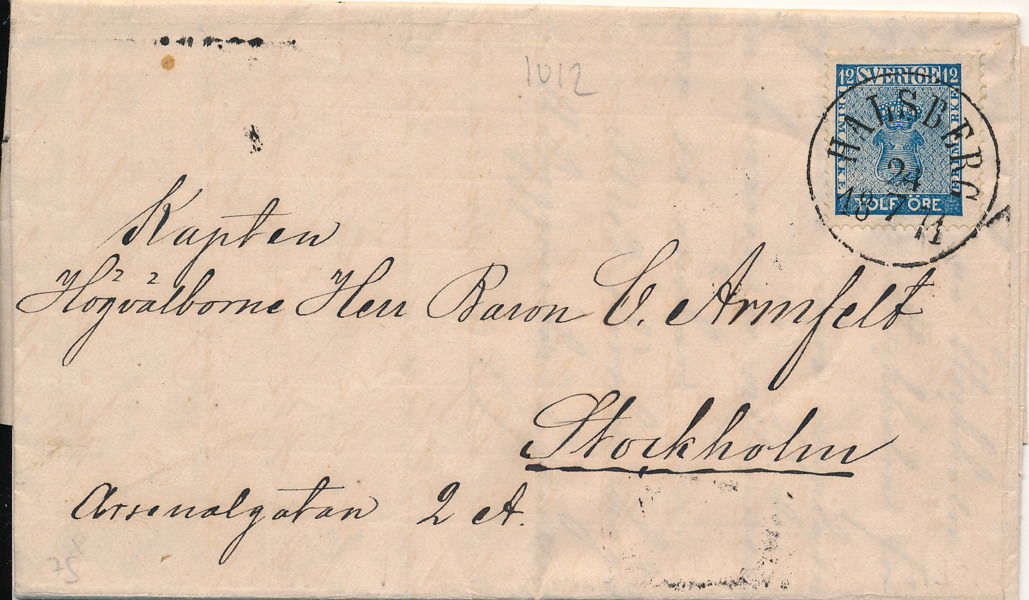 1012
12 SVERIGE 12
FRIMÄRKE
TOLF ÖRE
HALSBERG
24
18 7 71
Kapten
Högvälborne Herr Baron C. Armfelt
Stockholm
Arsenalgatan 2 A.
75